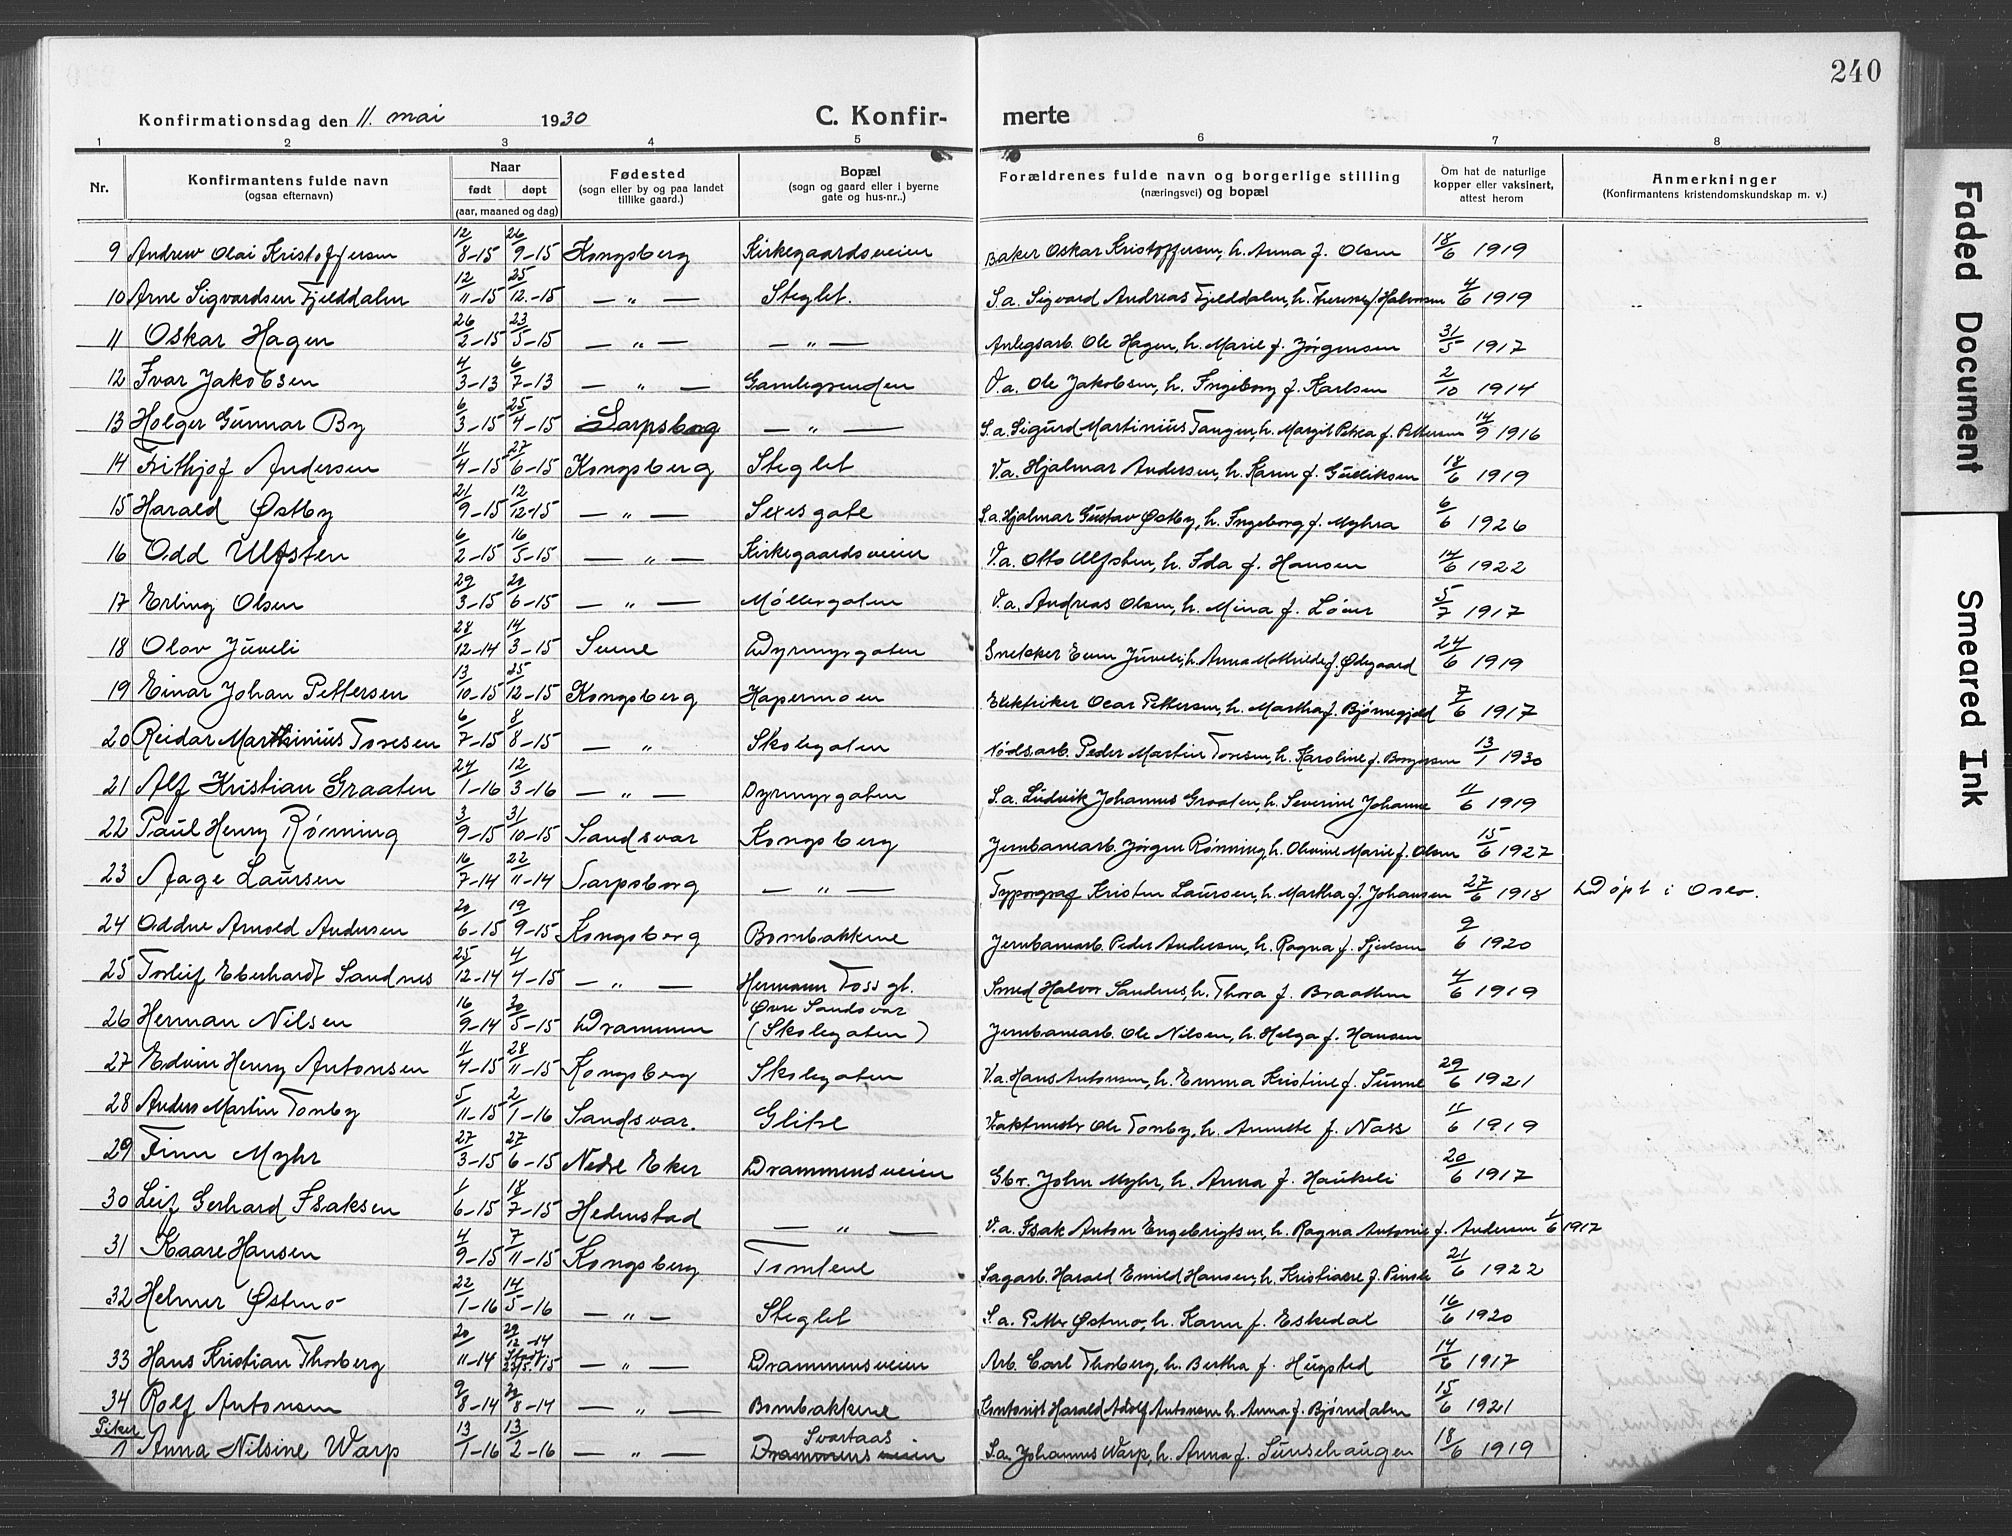 240
Konfirmationsdag den 11. mai 1930 C. Konfir- merte
1 2 3 4 5 6 7 8
Nr. Konfirmantens fulde navn (ogsaa efternavn) Naar født døpt (aar, maaned og dag) Fødested (sogn eller by og paa landet tillike gaard.) Bopæl (sogn og gaard eller i byerne gate og hus-nr..) Forældrenes fulde navn og borgerlige stilling (næringsvei) og bopæl Om hat de naturlige kopper eller vaksinert, attest herom Anmerkninger (Konfirmantens kristendomskundskap m. v.)
9 Andrew Olai Kristoffersen 12/8-15 26/9-15 Kongsberg Kirkegaardsveien Baker Oskar Kristoffersen, h. Anna f. Olsen 18/6 1919
10 Arne Sigvardsen Fjelddalen 12/11-15 25/12-15 — " — Steglet. S.a. Sigvard Andreas Fjelddalen, h. Therese f. Halvorsen 4/6 1919
11 Oskar Hagen 26/2-15 23/5-15 — " — — " — Anlegsarb. Ole Hagen, h. Marie f. Jørgensen 31/5 1917
12 Ivar Jakobsen 4/3-13 6/7-13 — " — Gamlegrenden V.a. Ole Jakobsen, h. Ingeborg f. Karlsen 2/10 1914
13 Holger Gunnar By 6/3-15 25/4-15 Sarpsborg — " — S.a. Sigurd Martinius Tangen, h. Margit Petrea f. Pettersen 14/9 1916
14 Frithjof Andersen 11/4-15 27/6-15 Kongsberg Steglet V.a. Hjalmar Andersen, h. Karen f. Gulliksen 18/6 1919
15 Harald Østby 21/9-15 12/12-15 — " — Sexesgate S.a. Hjalmar Gustav Østby, h. Ingeborg f. Myhra 6/6 1926
16 Odd Ulfsten 6/2-15 16/5-15 — " — Kirkegaardsveien V.a. Otto Ulfsten, h. Ida f. Hansen 14/6 1922
17 Erling Olsen 29/3-15 20/6-15 — " — Møllergaten V.a. Andreas Olsen, h. Mina f. Løver 5/7 1917
18 Olav Juveli 28/12-14 14/3-15 Svene Dyrmyrgaten Snekker Even Juveli, h. Anna Mathilde f. Ødegaard 24/6 1919
19 Einar Johan Pettersen 13/10-15 25/12-15 Kongsberg Hapermoen Elektriker Oscar Pettersen, h. Martha f. Bjørnegjeld 7/6 1917
20 Reidar Marthinius Toresen 6/7-15 8/8-15 — " Skolegaten Nødsarb. Peder Martin Toresen, h. Karoline f. Borgersen 13/1 1930
21 Alf Kristian Graaten 24/1-16 12/3-16 — " — Dyrmyrgaten S.a. Ludvik Johannes Graaten, h. Severine Johanne 11/6 1919
22 Paul Henry Rønning 3/9-15 31/10-15 Sandsvær Kongsberg Jernbanearb. Jørgen Rønning, h. Oluvine Marie f. Olsen 15/6 1927
23 Aage Laursen 16/7-14 22/11-14 Sarpsborg — " — Typograf Kristen Laursen, h. Martha f. Johansen 27/6 1918 Døpt i Oslo.
24 Oddne Arnold Andersen 20/6-15 19/9-15 Kongsberg Bombakkene Jernbanearb. Peder Andersen, h. Ragna f. 9/6 1920
25 Torleif Eberhardt Sandnes 25/12-14 4/4-15 — " — Hermann Foss gt. Smed Halvor Sandnes, h. Thora f. Braathen 4/6 1919
26 Herman Nilsen 16/9-14 30/5-15 Drammen Øvre Sandsvær (Skolegaten) Jernbanearb. Ole Nilsen, h. Helga f. Hansen
27 Edvin Henry Antonsen 11/4-15 28/11-15 Kongsberg Skolegaten V.a. Hans Antonsen, h. Emma Kristine f. Sunne 29/6 1921
28 Anders Martin Tomby 5/11-15 2/1-16 Sandsvær. Glitre Vaktmester Ole Tomby, h. Annette f. Nass 11/6 1919
29 Finn Myhr 27/3-15 27/6-15 Nedre Eker Drammensveien Gbr. John Myhr, h. Anna f. Haukeli 20/6 1917
30 Leif Gerhard Isaksen 1/6-15 18/7-15 Hedenstad — " — V.a. Isak Anton Engebrigtsen, h. Ragna Antonie f. Andersen 1/6 1917
31 Kaare Hansen 4/9-15 7/11-15 Kongsberg Tomtene Sagarb. Harald Emil Hansen, h. Kristiane f. 21/6 1922
32 Helmer Østmo 22/1-16 14/5-16 — " — Steglet S.a. Petter Østmo, h. Karen f. Eskedal 16/6 1920
33 Hans Kristian Thorberg 20/11-14 29/12-14 Stadf. 23/5-15 — " — Drammensveien Arb. Carl Thorberg, h. Bertha f. Hugsted 14/6 1917
34 Rolf Antonsen 9/8-14 30/8-14 — " — Bombakkene Kontorist Harald Adolf Antonsen h. Anna f. Bjørndalen 15/6 1921
Piker
1 Anna Nilsine Warp 13/1-16 13/2-16 — " — Svartaas Drammensveien S.a. Johannes Warp, h. Anna f. Sunsehaugen 18/6 1919
Faded Document
Smeared Ink